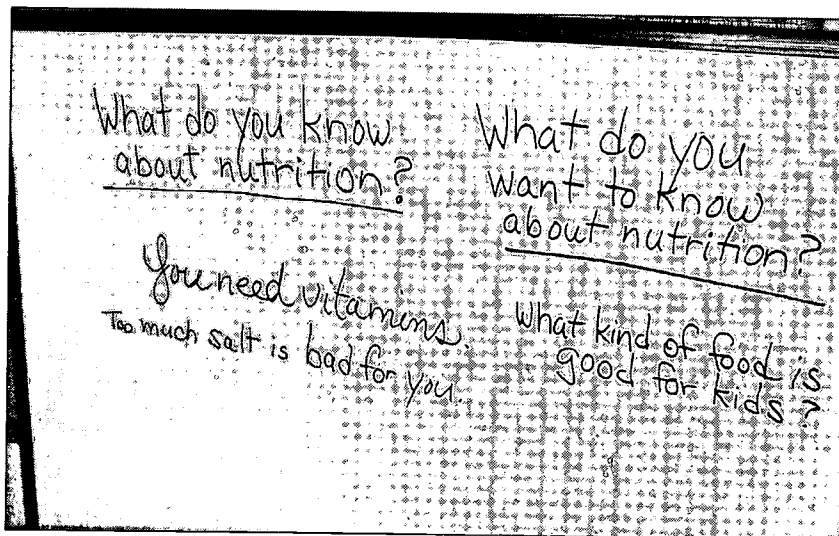 What do you know
about nutrition?
You need vitamins.
Too much salt is bad for you.
What do you
want to know
about nutrition?
What kind of food is
good for kids?